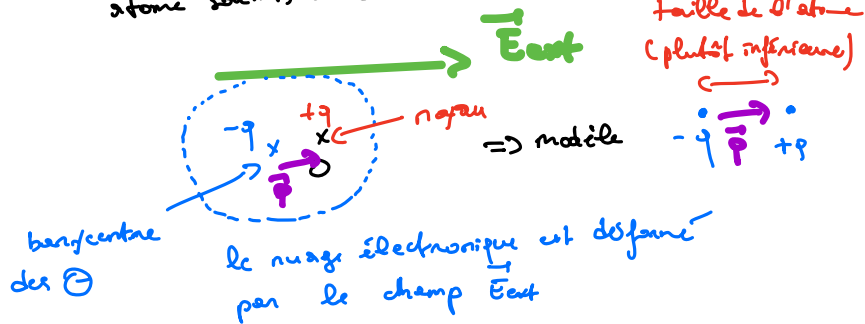 atome
taille de l'atome
(plutôt inférieure)
E⃗ext
-q
+q
noyau
x
x
O
p⃗
=> modèle
-q
p⃗
+q
barycentre
des ⊖
le nuage électronique est déformé
par le champ E⃗ext